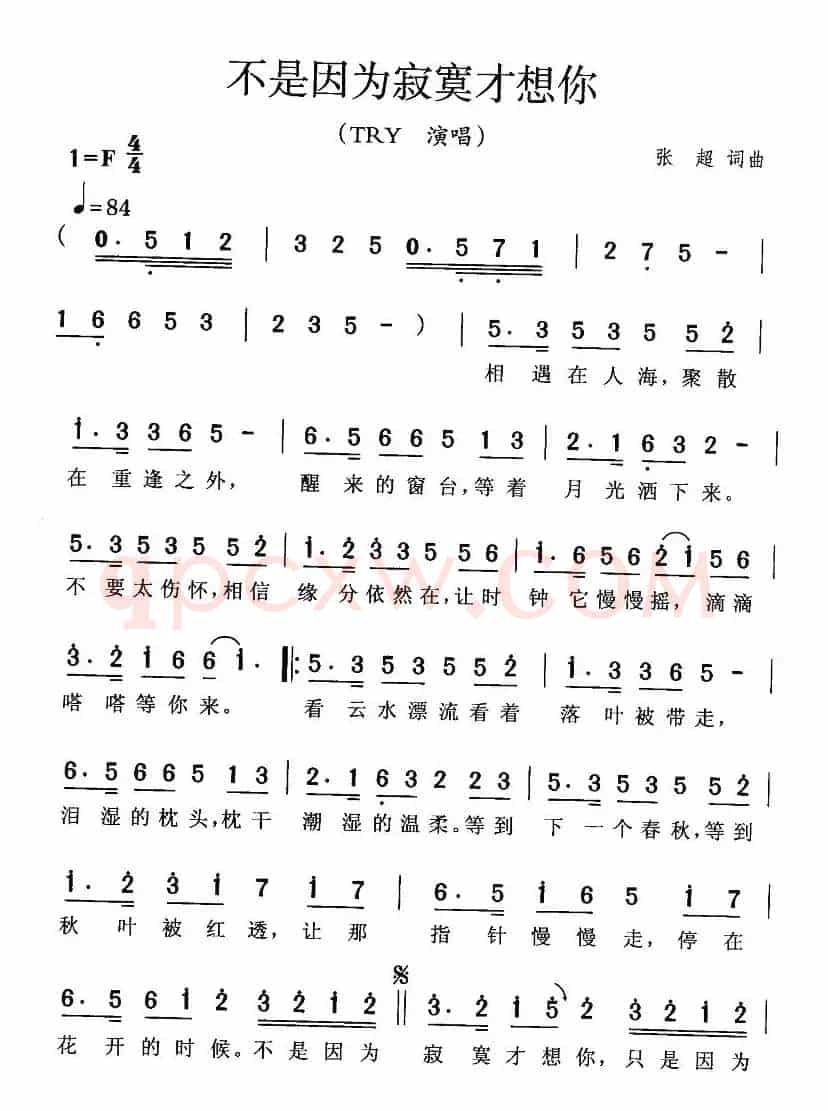 不是因为寂寞才想你
（TRY 演唱）
1=F 4/4
张 超 词曲
♩=84
( 0. 5 1 2 | 3 2 5 0. 5 7 1 | 2 7 5 - |
1 6 6 5 3 | 2 3 5 - ) | 5. 3 5 3 5 5 2 |
相 遇在人海，聚散
1. 3 3 6 5 - | 6. 5 6 6 5 1 3 | 2. 1 6 3 2 - |
在 重逢之外， 醒 来的窗台，等着 月 光洒下来。
5. 3 5 3 5 5 2 | 1. 2 3 3 5 5 6 | 1. 6 5 6 2 1 5 6 |
不 要太伤怀，相信 缘 分依然在，让时 钟 它慢慢摇， 滴滴
qpcxw.com
3. 2 1 6 6 1. |: 5. 3 5 3 5 5 2 | 1. 3 3 6 5 - |
嗒 嗒等你来。 看 云水漂流看着 落 叶被带走，
6. 5 6 6 5 1 3 | 2. 1 6 3 2 2 3 | 5. 3 5 3 5 5 2 |
泪 湿的枕头，枕干 潮 湿的温柔。等到 下 一个春秋，等到
1. 2 3 1 7 1 7 | 6. 5 1 6 5 1 7 |
秋 叶被红透，让那 指 针慢慢走，停在
6. 5 6 1 2 3 2 1 2 || 3. 2 1 5 2 3 2 1 2 |
花 开的时候。不是因为 寂 寞才想你，只是因为